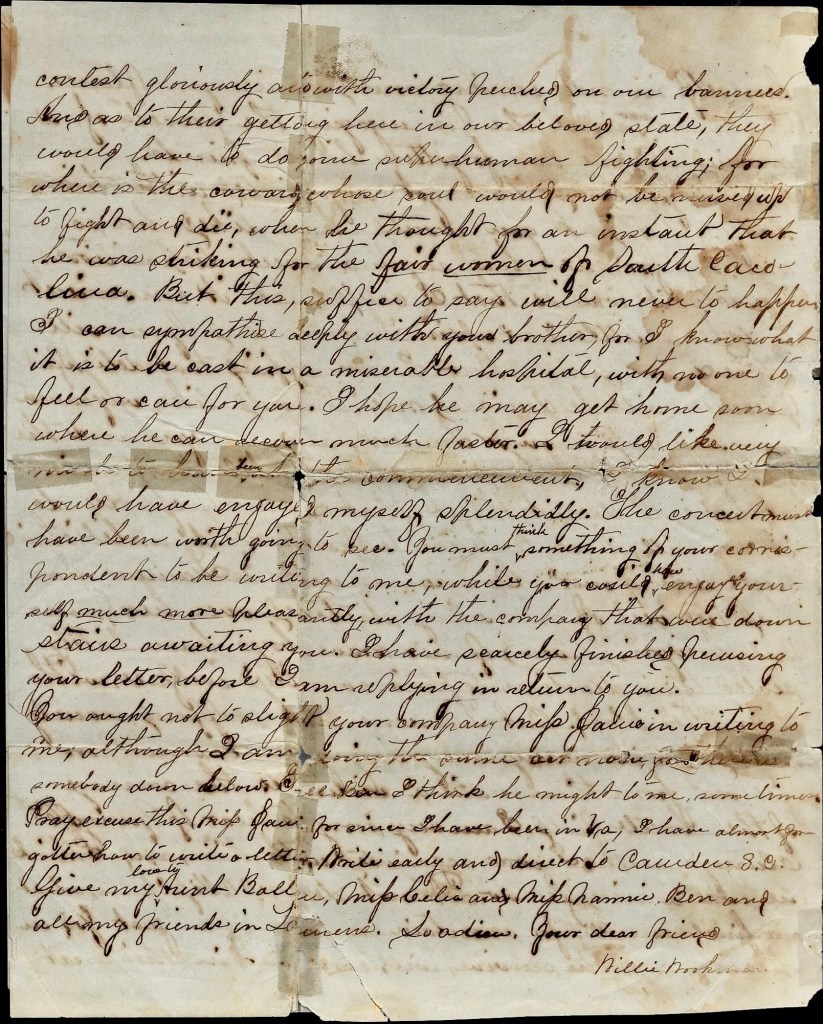 contest gloriously and with victory perched on our banners.
And as to their getting here in our beloved state, they
would have to do some super human fighting; for
where is the coward whose soul would not be nerved up
to fight and die, when he thought for an instant that
he was striking for the fair women of South Caro-
lina. But this, suffice to say will never to happen
I can sympathise deeply with your brother, for I know what
it is to be cast in a miserable hospital, with no one to
feel or care for you. I hope he may get home soon
where he can recover much faster. I would like very
much to have been at the commencement, I know I
would have engoyed myself splendidly. The concert must
have been worth going to see. You must think something of your corris-
pondent to be writing to me, while you could have engoyed your-
self much more pleasantly, with the company that were down
stairs awaiting you. I have scarcely finished perusing
your letter, before I am replying in return to you.
You ought not to slight your company Miss in writing to
me, although I am doing the same act now, for there is
somebody down below. I think he might to me, sometimes
Pray excuse this Miss for since I have been in Va, I have almost for-
gotten how to write a letter. Write early and direct to Camden S.C.
Give my love to Aunt Ball, Miss Celia and Miss Nannie, Ben and
all my friends in Laurens. So adieu. Your dear friend
Willie Workman